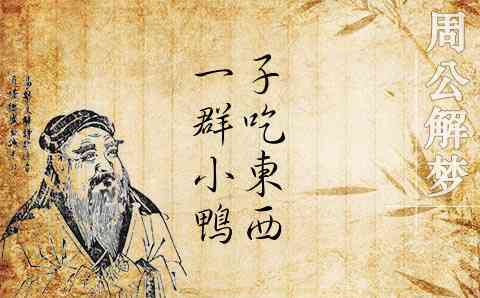 周公解梦
一群小鴨
子吃東西